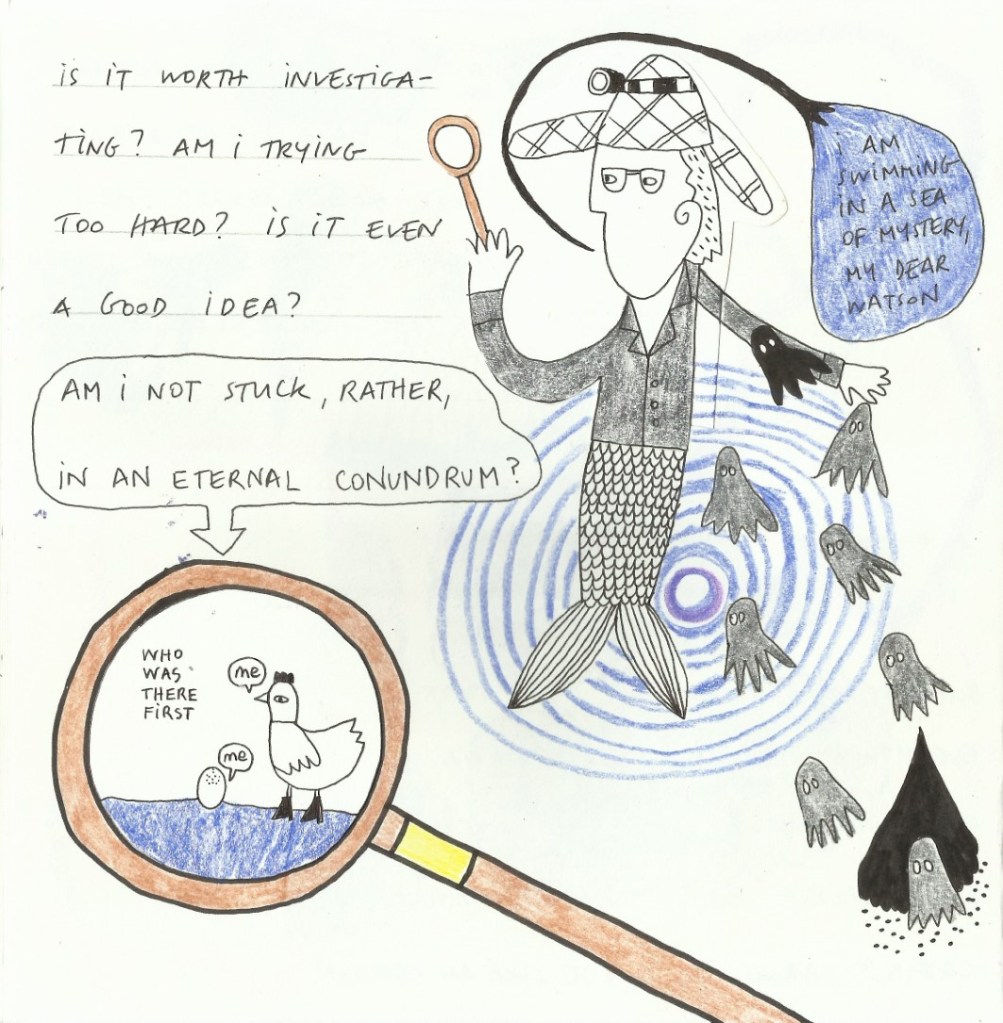 is iT WORTH iNVESTIGA-
TiNG? AM i TRYiNG
TOO HARD? iS iT EVEN
A GOOD iDEA?
AM i NOT STUCK, RATHER,
iN AN ETERNAL CONUNDRUM?
i AM
SWiMMiNG
iN A SEA
OF MYSTERY,
MY DEAR
WATSON
WHO
WAS
THERE
FiRST
me
me